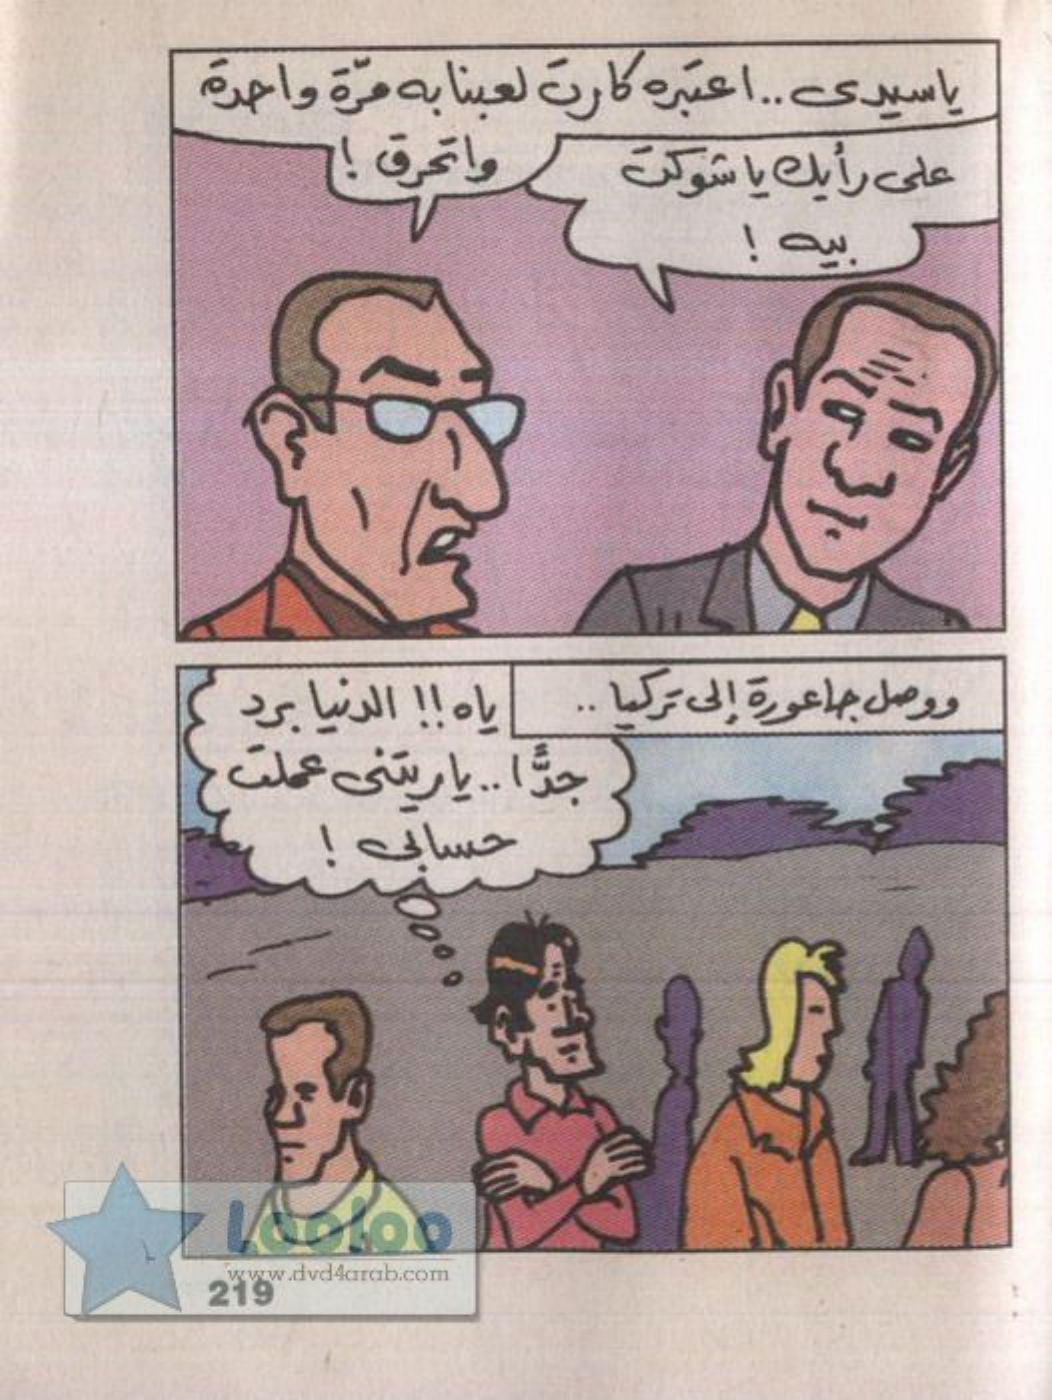 ياسيدى .. اعتبره كارت لعبنا به مرّة واحدة
واتحرق !
على رأيك يا شوكت
بيه !
ووصل جاعورة إلى تركيا ..
ياه !! الدنيا برد
جدًّا .. ياريتنى عملت
حسابى !
Looloo
www.dvd4arab.com
219